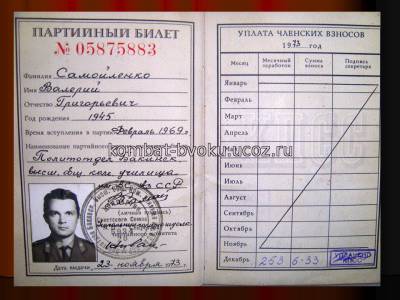 ПАРТИЙНЫЙ БИЛЕТ
№ 05875883
Фамилия Самойленко
Имя Валерий
Отчество Григорьевич
Год рождения 1945
Время вступления в партию Февраль 1969 г.
Наименование партийной
Политотдел Бакинск
высш. общ. ком. училища
(личная подпись)
Дата выдачи 23 ноября 73 г.
УПЛАТА ЧЛЕНСКИХ ВЗНОСОВ
1973 год
Месяц Месячный заработок Сумма взноса Подпись секретаря
Январь
Февраль
Март
Апрель
Июнь
Июль
Август
Сентябрь
Октябрь
Ноябрь
Декабрь 253 6-33
kombat-bvoku.ucoz.ru